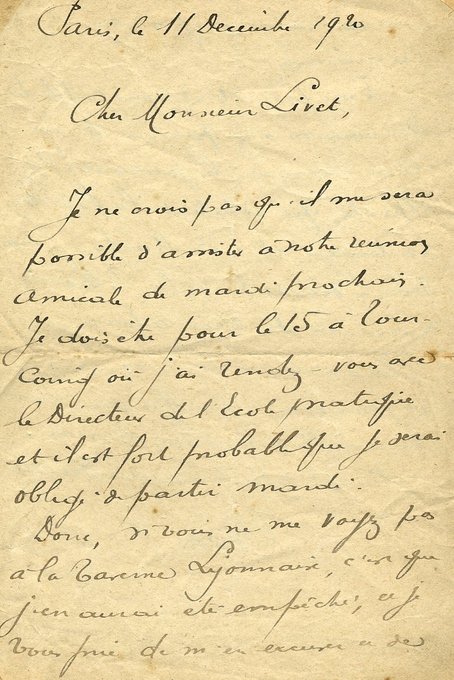 Paris, le 11 Decembre 1920
Cher Monsieur Livet,
Je ne crois pas qu'il me sera
possible d'assister à notre réunion
amicale de mardi prochain.
Je dois être pour le 15 à Tour-
coing où j'ai rendez-vous avec
le Directeur de l'Ecole pratique
et il est fort probable que je serai
obligé de partir mardi.
Donc, si vous ne me voyez pas
à la Taverne Lyonnaise, c'est que
j'en aurai été empêché, et je
vous prie de m'en excuser